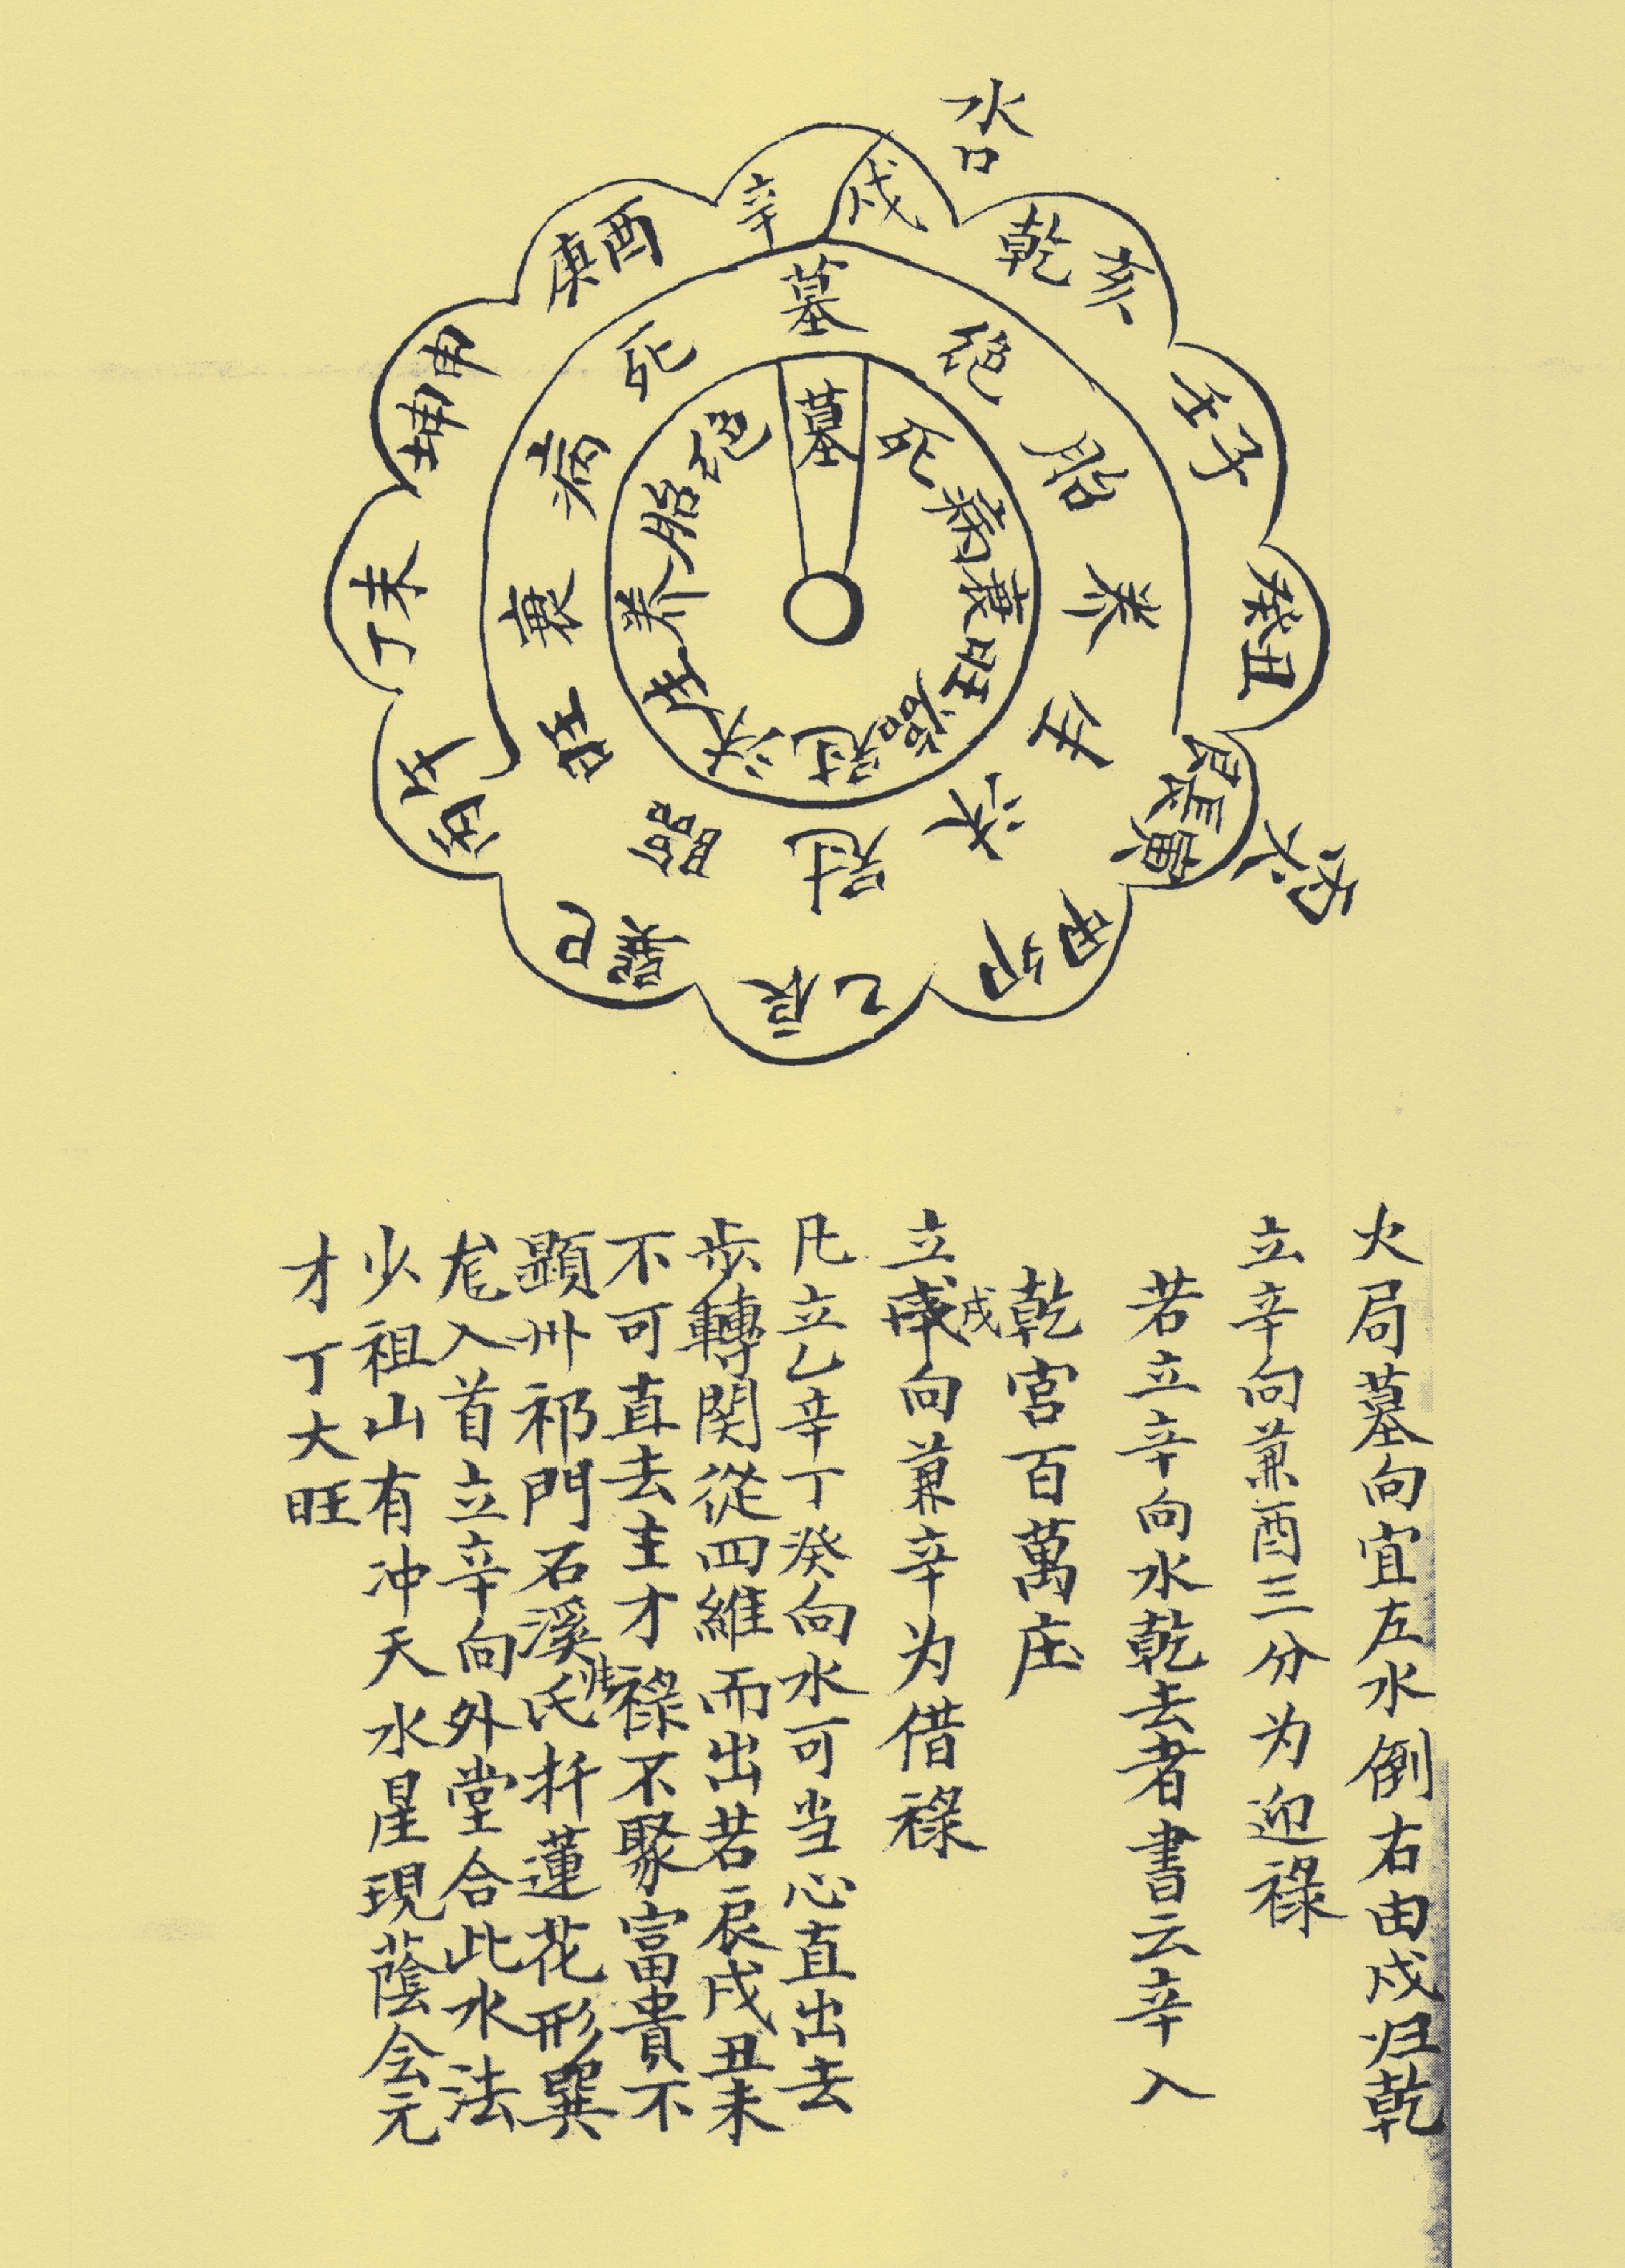 水口
辛戌
乾亥
壬子
癸丑
艮寅
甲卯
乙辰
巽巳
丙午
丁未
坤申
庚酉
墓
绝
胎
养
生
沐
冠
臨
旺
衰
病
死
墓
死
病
衰
旺
臨
冠
沐
生
养
胎
绝
火局墓向宜左水倒右由戌归乾
立辛向兼酉三分为迎祿
若立辛向水乾去者書云辛入
乾宮百萬庄
立戌向兼辛为借祿
凡立乙辛丁癸向水可当心直出去
步轉関從四維而出若辰戌丑未
不可直去主才祿不聚富貴不
顕卅祁門石溪氏扦蓮花形巽
龙入首立辛向外堂合此水法
少祖山有冲天水星現蔭会元
才丁大旺